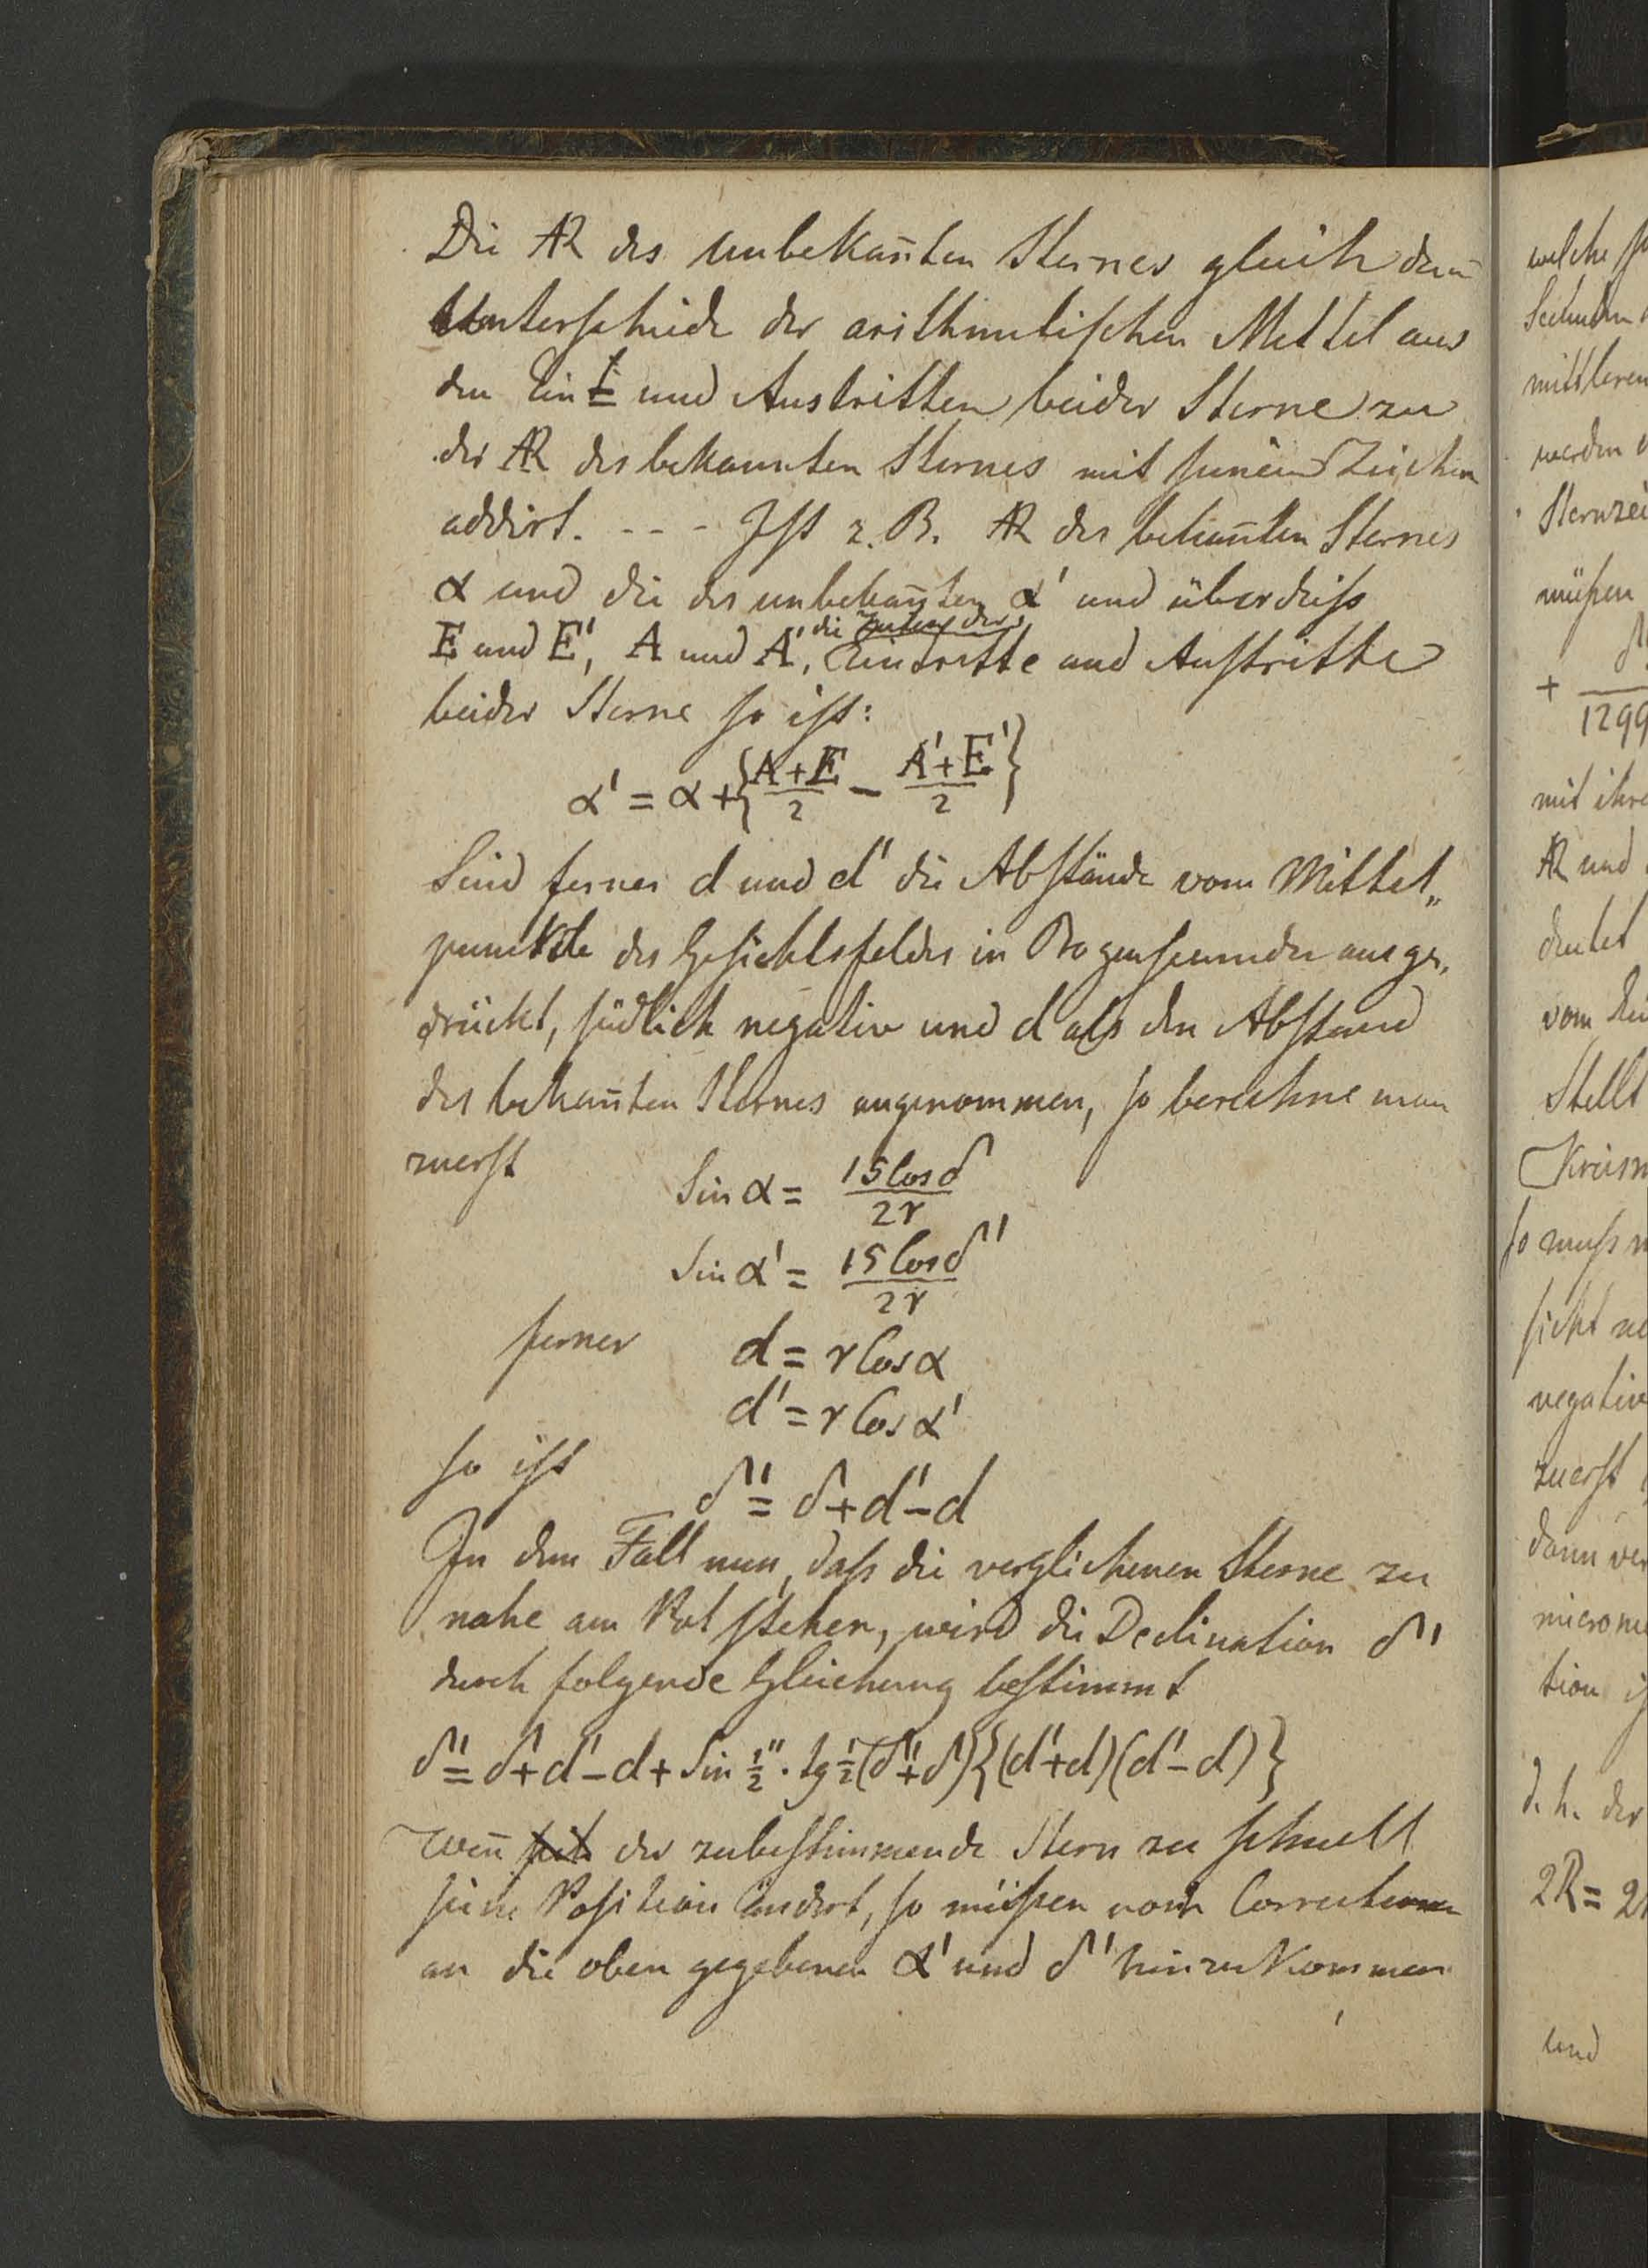 Die AR des unbekan̄ten Sternes gleich dem
Unterschiede der arithmetischen Mittel aus
den Eint= und Austritten beider Sterne zu
der AR des bekannten Sternes mit seinem Zeichen
addirt. - - - Ist z. B. AR des bekan̄ten Sternes
α und die des unbekan̄ten α' und überdiess
die Zeiten der
E und E', A und A', Eintritte und Austritte
beider Sterne so ist:
α' = α + { (A+E)/2 − (A'+E')/2 }
Sind ferner d und d' die Abstände vom Mittel„
punckte des Gesichtsfeldes in Bogensecunden ausge„
drückt, südlich negativ und d als den Abstand
des bekan̄ten Sternes angenommen, so berechne man
zuerst Sin α = 15 Cos δ / 2r
Sin α' = 15 Cos δ' / 2r
ferner d = r Cos α
d' = r Cos α'
so ist δ' = δ + d' − d
In dem Fall nun, dass die verglichenen Sterne zu
nahe am Pol stehen, wird die Declination δ'
durch folgende Gleichung bestimmt
δ' = δ + d' − d + Sin ½" . tg ½ (δ' + δ) {(d' + d) (d' − d)}
Wen̄ der zubestimmende Stern zu schnell
seine Position ändert, so müssen noch Correctionen
an die oben gegebenen α' und δ' hinzukommen
welche
mittleren
werden
müssen
+
1299
mit ihre
AR und
deutet
vom
Stellt
so muss
negativ
zuerst
dann ver
tion
d. h. der
2R = 2
und